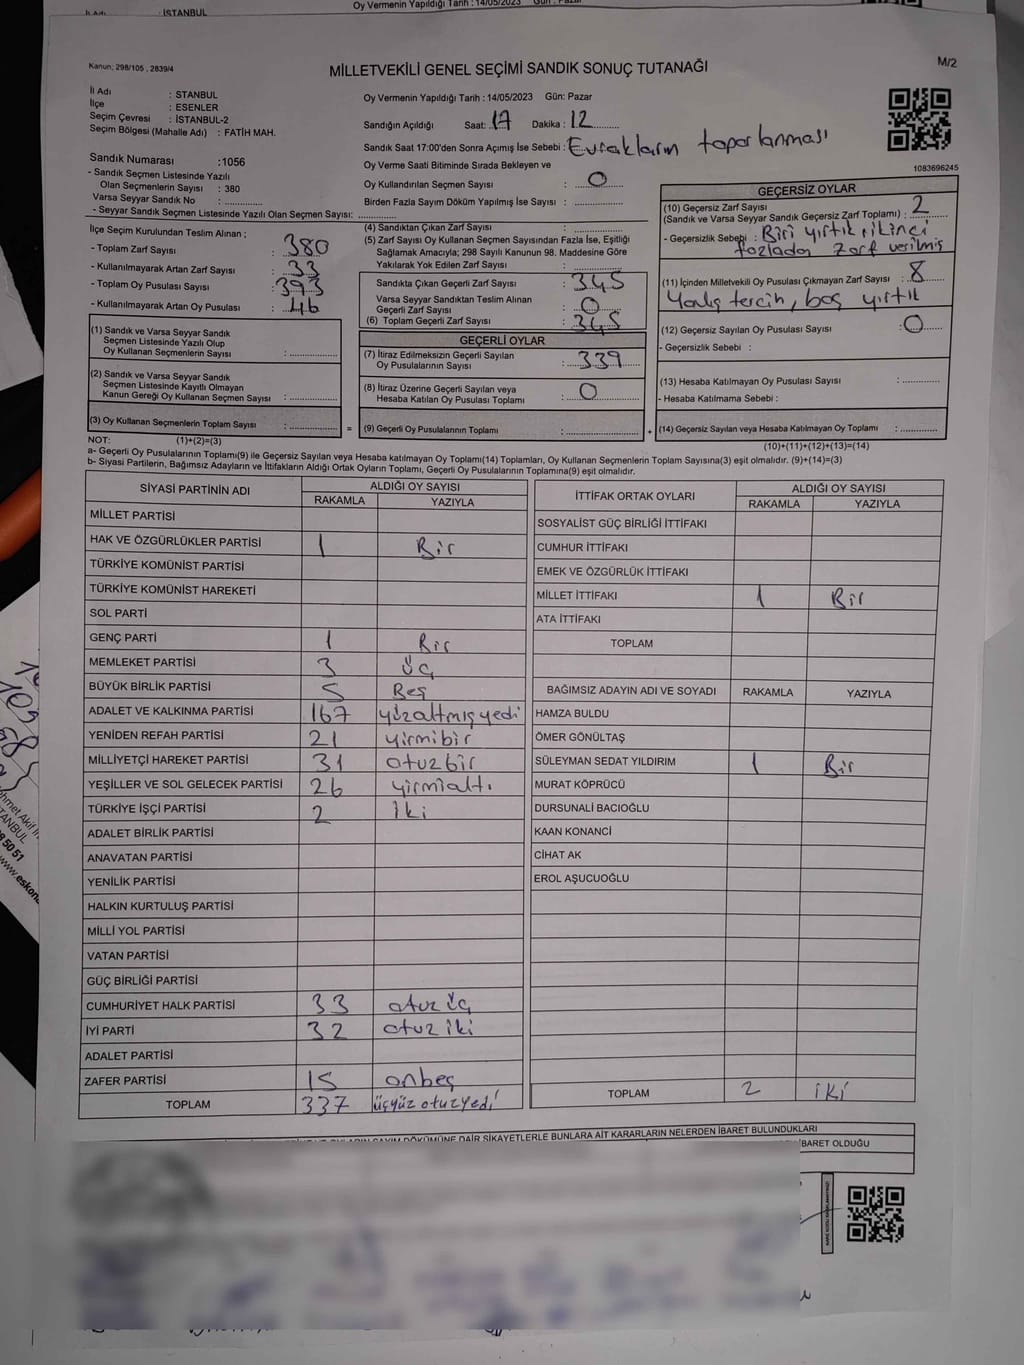 İli Adı : İSTANBUL
Oy Vermenin Yapıldığı Tarih : 14/05/2023 Gün : Pazar
Kanun; 298/105 , 2839/4
MİLLETVEKİLİ GENEL SEÇİMİ SANDIK SONUÇ TUTANAĞI
M/2
İl Adı : İSTANBUL
İlçe : ESENLER
Seçim Çevresi : İSTANBUL-2
Seçim Bölgesi (Mahalle Adı) : FATİH MAH.
Sandık Numarası :1056
- Sandık Seçmen Listesinde Yazılı
Olan Seçmenlerin Sayısı : 380
Varsa Seyyar Sandık No :
- Seyyar Sandık Seçmen Listesinde Yazılı Olan Seçmen Sayısı:
Oy Vermenin Yapıldığı Tarih : 14/05/2023 Gün: Pazar
Sandığın Açıldığı Saat: 17 Dakika : 12
Sandık Saat 17:00'den Sonra Açımış İse Sebebi : Evrakların toparlanması
Oy Verme Saati Bitiminde Sırada Bekleyen ve
Oy Kullandırılan Seçmen Sayısı : 0
Birden Fazla Sayım Döküm Yapılmış İse Sayısı :
1083696245
İlçe Seçim Kurulundan Teslim Alınan ;
- Toplam Zarf Sayısı : 380
- Kullanılmayarak Artan Zarf Sayısı : 33
- Toplam Oy Pusulası Sayısı : 393
- Kullanılmayarak Artan Oy Pusulası : 46
(1) Sandık ve Varsa Seyyar Sandık
Seçmen Listesinde Yazılı Olup
Oy Kullanan Seçmenlerin Sayısı :
(2) Sandık ve Varsa Seyyar Sandık
Seçmen Listesinde Kayıtlı Olmayan
Kanun Gereği Oy Kullanan Seçmen Sayısı :
(3) Oy Kullanan Seçmenlerin Toplam Sayısı :
=
(4) Sandıktan Çıkan Zarf Sayısı :
(5) Zarf Sayısı Oy Kullanan Seçmen Sayısından Fazla İse, Eşitliği
Sağlamak Amacıyla; 298 Sayılı Kanunun 98. Maddesine Göre
Yakılarak Yok Edilen Zarf Sayısı :
Sandıkta Çıkan Geçerli Zarf Sayısı : 345
Varsa Seyyar Sandıktan Teslim Alınan
Geçerli Zarf Sayısı : 0
(6) Toplam Geçerli Zarf Sayısı : 345
GEÇERLİ OYLAR
(7) İtiraz Edilmeksizin Geçerli Sayılan
Oy Pusulalarının Sayısı : 339
(8) İtiraz Üzerine Geçerli Sayılan veya
Hesaba Katılan Oy Pusulası Toplamı : 0
(9) Geçerli Oy Pusulalarının Toplamı :
+
GEÇERSİZ OYLAR
(10) Geçersiz Zarf Sayısı
(Sandık ve Varsa Seyyar Sandık Geçersiz Zarf Toplamı) : 2
- Geçersizlik Sebebi : Biri yırtık, ikinci
fazladan zarf verilmiş
(11) İçinden Milletvekili Oy Pusulası Çıkmayan Zarf Sayısı : 8
Yanlış tercih, boş yırtık
(12) Geçersiz Sayılan Oy Pusulası Sayısı : 0
- Geçersizlik Sebebi :
(13) Hesaba Katılmayan Oy Pusulası Sayısı :
- Hesaba Katılmama Sebebi :
(14) Geçersiz Sayılan veya Hesaba Katılmayan Oy Toplamı :
NOT: (1)+(2)=(3)
(10)+(11)+(12)+(13)=(14)
a- Geçerli Oy Pusulalarının Toplamı(9) ile Geçersiz Sayılan veya Hesaba Katılmayan Oy Toplamı(14) Toplamları, Oy Kullanan Seçmenlerin Toplam Sayısına(3) eşit olmalıdır. (9)+(14)=(3)
b- Siyasi Partilerin, Bağımsız Adayların ve İttifakların Aldığı Ortak Oyların Toplamı, Geçerli Oy Pusulalarının Toplamına(9) eşit olmalıdır.
SİYASİ PARTİNİN ADI ALDIĞI OY SAYISI
RAKAMLA YAZIYLA
MİLLET PARTİSİ
HAK VE ÖZGÜRLÜKLER PARTİSİ 1 Bir
TÜRKİYE KOMÜNİST PARTİSİ
TÜRKİYE KOMÜNİST HAREKETİ
SOL PARTİ
GENÇ PARTİ 1 Bir
MEMLEKET PARTİSİ 3 üç
BÜYÜK BİRLİK PARTİSİ 5 Beş
ADALET VE KALKINMA PARTİSİ 167 yüzaltmışyedi
YENİDEN REFAH PARTİSİ 21 yirmibir
MİLLİYETÇİ HAREKET PARTİSİ 31 otuzbir
YEŞİLLER VE SOL GELECEK PARTİSİ 26 yirmialtı
TÜRKİYE İŞÇİ PARTİSİ 2 İki
ADALET BİRLİK PARTİSİ
ANAVATAN PARTİSİ
YENİLİK PARTİSİ
HALKIN KURTULUŞ PARTİSİ
MİLLİ YOL PARTİSİ
VATAN PARTİSİ
GÜÇ BİRLİĞİ PARTİSİ
CUMHURİYET HALK PARTİSİ 33 otuz üç
İYİ PARTİ 32 otuz iki
ADALET PARTİSİ
ZAFER PARTİSİ 15 onbeş
TOPLAM 337 üçyüz otuzyedi
İTTİFAK ORTAK OYLARI ALDIĞI OY SAYISI
RAKAMLA YAZIYLA
SOSYALİST GÜÇ BİRLİĞİ İTTİFAKI
CUMHUR İTTİFAKI
EMEK VE ÖZGÜRLÜK İTTİFAKI
MİLLET İTTİFAKI 1 Bir
ATA İTTİFAKI
TOPLAM
BAĞIMSIZ ADAYIN ADI VE SOYADI RAKAMLA YAZIYLA
HAMZA BULDU
ÖMER GÖNÜLTAŞ
SÜLEYMAN SEDAT YILDIRIM 1 Bir
MURAT KÖPRÜCÜ
DURSUNALİ BACIOĞLU
KAAN KONANCİ
CİHAT AK
EROL AŞUCUOĞLU
TOPLAM 2 iki
DÖKÜMÜNE DAİR ŞİKAYETLERLE BUNLARA AİT KARARLARIN NELERDEN İBARET BULUNDUKLARI
İBARET OLDUĞU